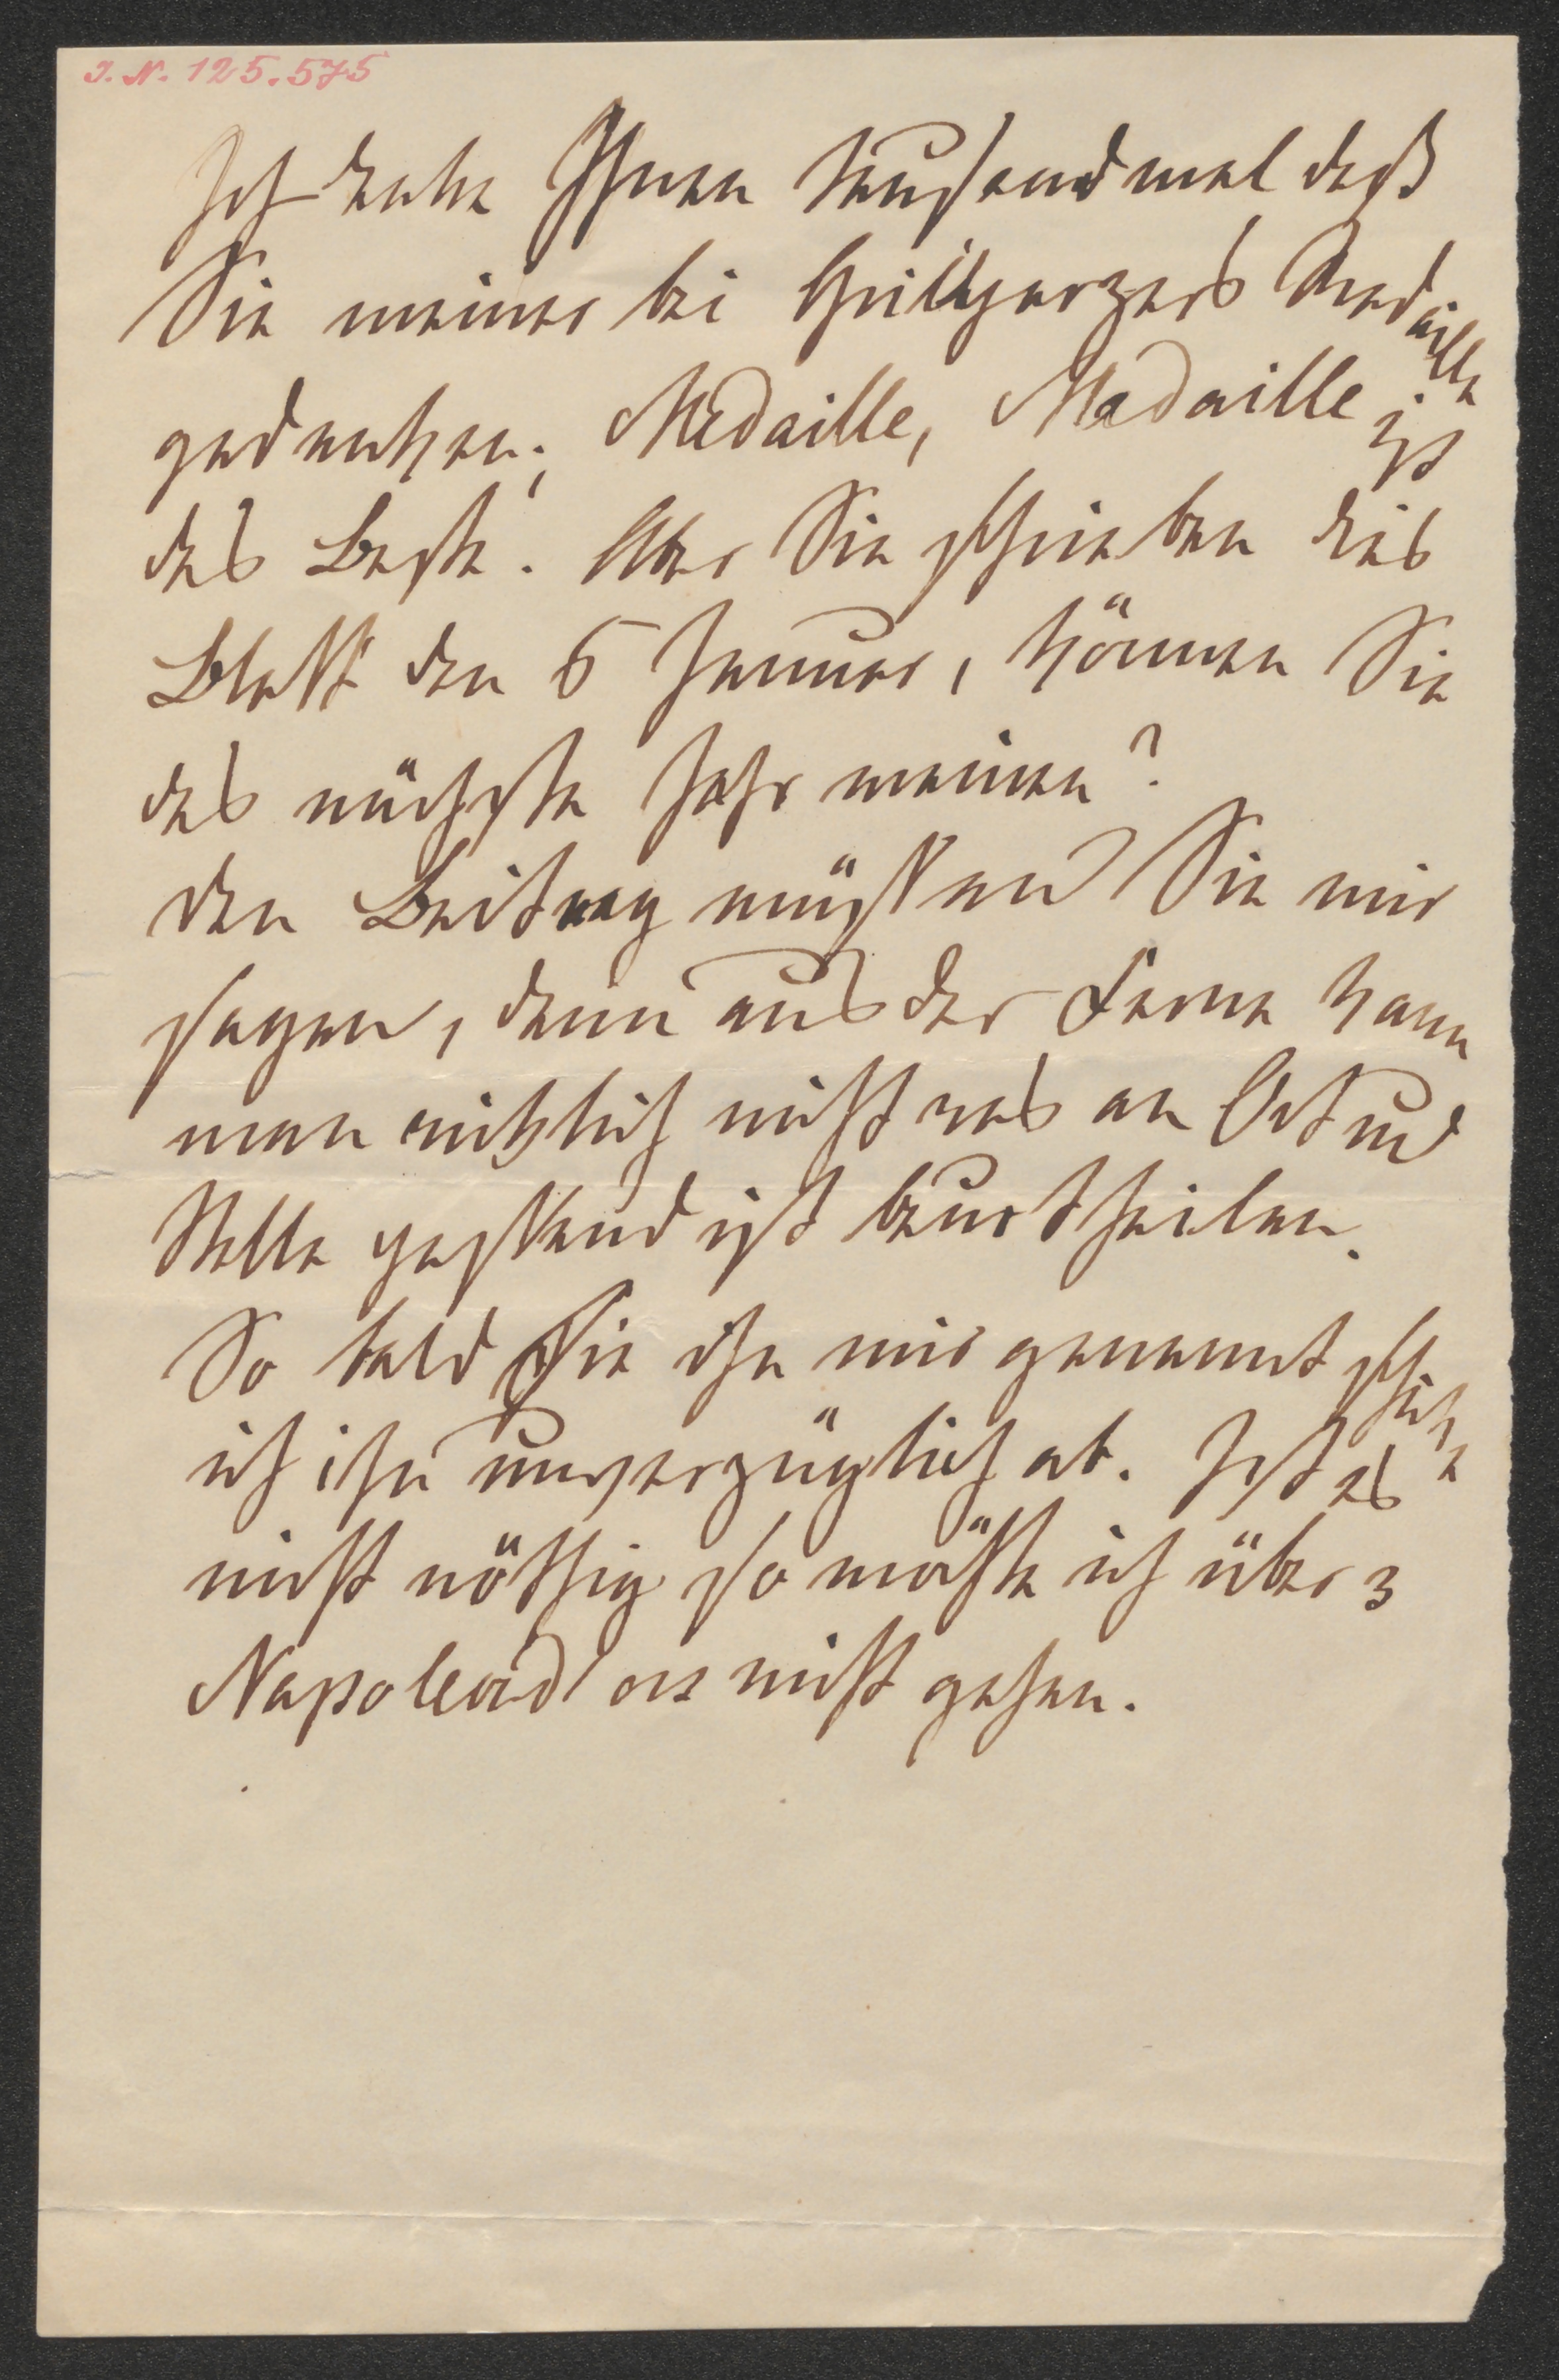 I. N. 125.575
Ich danke Ihnen tausendmal daß
Sie meiner bei Grillparzers Medaille
gedenken; Medaille, Medaille ist
das Beste. Aber Sie schrieben das
Blatt den 6 Januar, können Sie
das nächste Jahr meinen?
den Beitrag müßten Sie mir
sagen, denn aus der Ferne kann
man nicht was an Ort und
Stelle passend ist beurtheilen.
So bald Sie ihn mir genannt schicke
ich ihn unverzüglich ab. Ist es
nicht nöthig so möchte ich über 3
Napoleond'or nicht gehen.